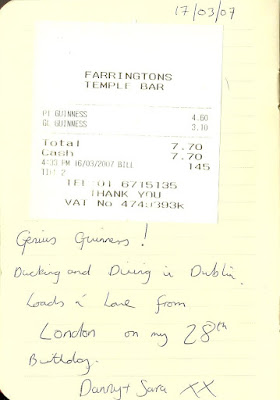 17/03/07
FARRINGTONS
TEMPLE BAR
PT GUINNESS 4.60
GL GUINNESS 3.10
Total 7.70
Cash 7.70
4:33 PM 16/03/2007 BILL 145
TILL 2
TEL 01 6715135
THANK YOU
VAT No 4749393k
Genius Guinness!
Ducking and Diving in Dublin.
Loads a Love from
London on my 28th
Birthday.
Danny + Sara XX